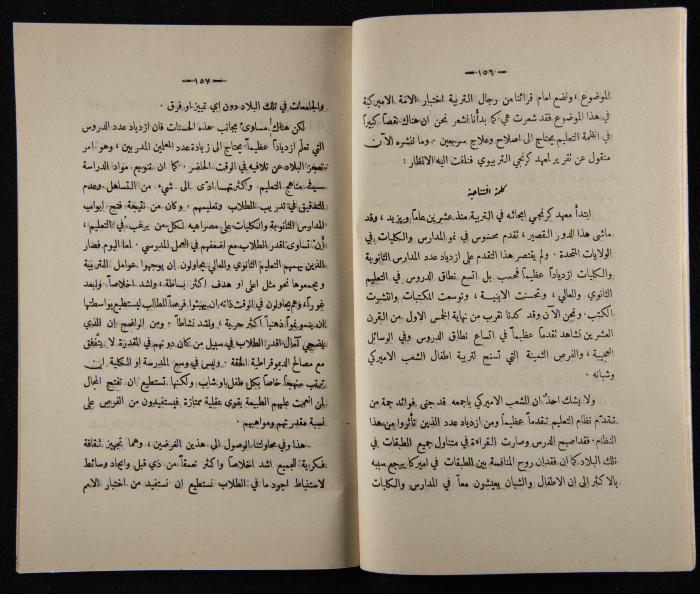 — ١٥٦ —
الموضوع، ونضع امام قرائنا من رجال التربية اختبار الامة الاميركية
في هذا الموضوع فقد شعرت هي كما بدأنا نشعر نحن ان هناك نقصاً كبيراً
في انظمة التعليم يحتاج الى اصلاح وعلاج سريعين. وما ننشره الآن
منقول عن تقرير لمعهد كرنجي التربيوي فنلفت اليه الانظار:
كلمة افتتاحية
ابتدأ معهد كرنجي ابحاثه في التربية منذ عشرين عاماً ويزيد، وقد
ماشى هذا الدور القصير، تقدم محسوس في نمو المدارس والكليات في
الولايات المتحدة. ولم يقتصر هذا التقدم على ازدياد عدد المدارس الثانوية
والكليات ازدياداً عظيماً فحسب بل اتسع نطاق الدروس في التعليم
الثانوي والعالي، وتحسنت الابنية، وتوسعت المكتبات وانتشرت
الكتب. ونحن الآن وقد كدنا نقرب من نهاية الخمس الاول من القرن
العشرين نشاهد تقدماً عظيماً في اتساع نطاق الدروس وفي الوسائل
العجيبة، والفرص الثمينة التي تسنح لتربية اطفال الشعب الاميركي
وشبانه.
ولا يشك احد ان الشعب الاميركي باجمعه قد جنى فوائد جمة من
تقدم نظام التعليم تقدماً عظيماً ومن ازدياد عدد الذين تأثروا من هذا
النظام. فقد اصبح الدرس وصارت القراءة في متناول جميع الطبقات في
تلك البلاد كما ان فقدان روح المنافسة بين الطبقات في اميركا يرجع سببه
بالاكثر الى ان الاطفال والشبان يعيشون معاً في المدارس والكليات
— ١٥٧ —
والجامعات في تلك البلاد دون اي تمييز او فرق.
لكن هناك مساوئ بجانب هذه الحسنات فان ازدياد عدد الدروس
التي تعلم ازدياداً عظيماً يحتاج الى زيادة عدد المعلمين المدربين، وهو امر
تعجز البلاد عن تلافيه في الوقت الحاضر. كما ان تنويع مواد الدراسة
في مناهج التعليم وكثرتها ادى الى شيء من التساهل وعدم
التدقيق في تدريب الطلاب وتعليمهم. وكان من نتيجة فتح ابواب
المدارس الثانوية والكليات على مصراعيه لكل من يرغب في التعليم،
أن تساوى اقدر الطلاب مع اضعفهم في العمل المدرسي. اما اليوم فصار
الذين يهمهم التعليم الثانوي والعالي يحاولون ان يوجهوا عوامل التربية
ويجمعوها نحو مثل اعلى او هدف اكثر بساطة، واشد اخلاصاً وابعد
غوراً، وهم يحاولون في الوقت ذاته ان يهيئوا فرصاً للطالب ليستطيع بواسطتها
ان ينمو نمواً ذهنياً اكثر حرية، واشد نشاطاً. ومن الواضح ان الذي
يضحي آمال اقدر الطلاب في سبيل من كان دونهم في المقدرة لا يتفق
مع مصالح الديموقراطية الحقة. وليس في وسع المدرسة او الكلية ان
ترتب منهجاً خاصاً بكل طفل او شاب ولكنها تستطيع ان تفتح المجال
لمن انعمت عليهم الطبيعة بقوى عقلية ممتازة فيستفيدون من الفرص على
نسبة مقدرتهم ومواهبهم.
هذا وفي محاولتنا الوصول الى هذين الغرضين، وهما تجهيز ثقافة
فكرية للجميع اشد اخلاصاً واكثر تعمقاً من ذي قبل وايجاد وسائط
لاستنباط اجود ما في الطلاب نستطيع ان نستفيد من اختبار الامم